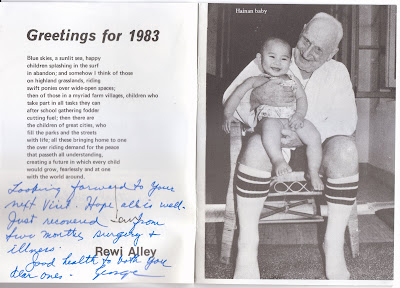 Greetings for 1983
Blue skies, a sunlit sea, happy
children splashing in the surf
in abandon; and somehow I think of those
on highland grasslands, riding
swift ponies over wide-open spaces;
then of those in a myriad farm villages, children who
take part in all tasks they can
after school gathering fodder
cutting fuel; then there are
the children of great cities, who
fill the parks and the streets
with life; all these bringing home to one
the over riding demand for the peace
that passeth all understanding,
creating a future in which every child
would grow, fearlessly and at one
with the world around.
Looking forward to your
next visit. Hope all is well.
Just recovered from
two months surgery &
illness.
Rewi Alley
Good health to both you
dear ones. George
Hainan baby